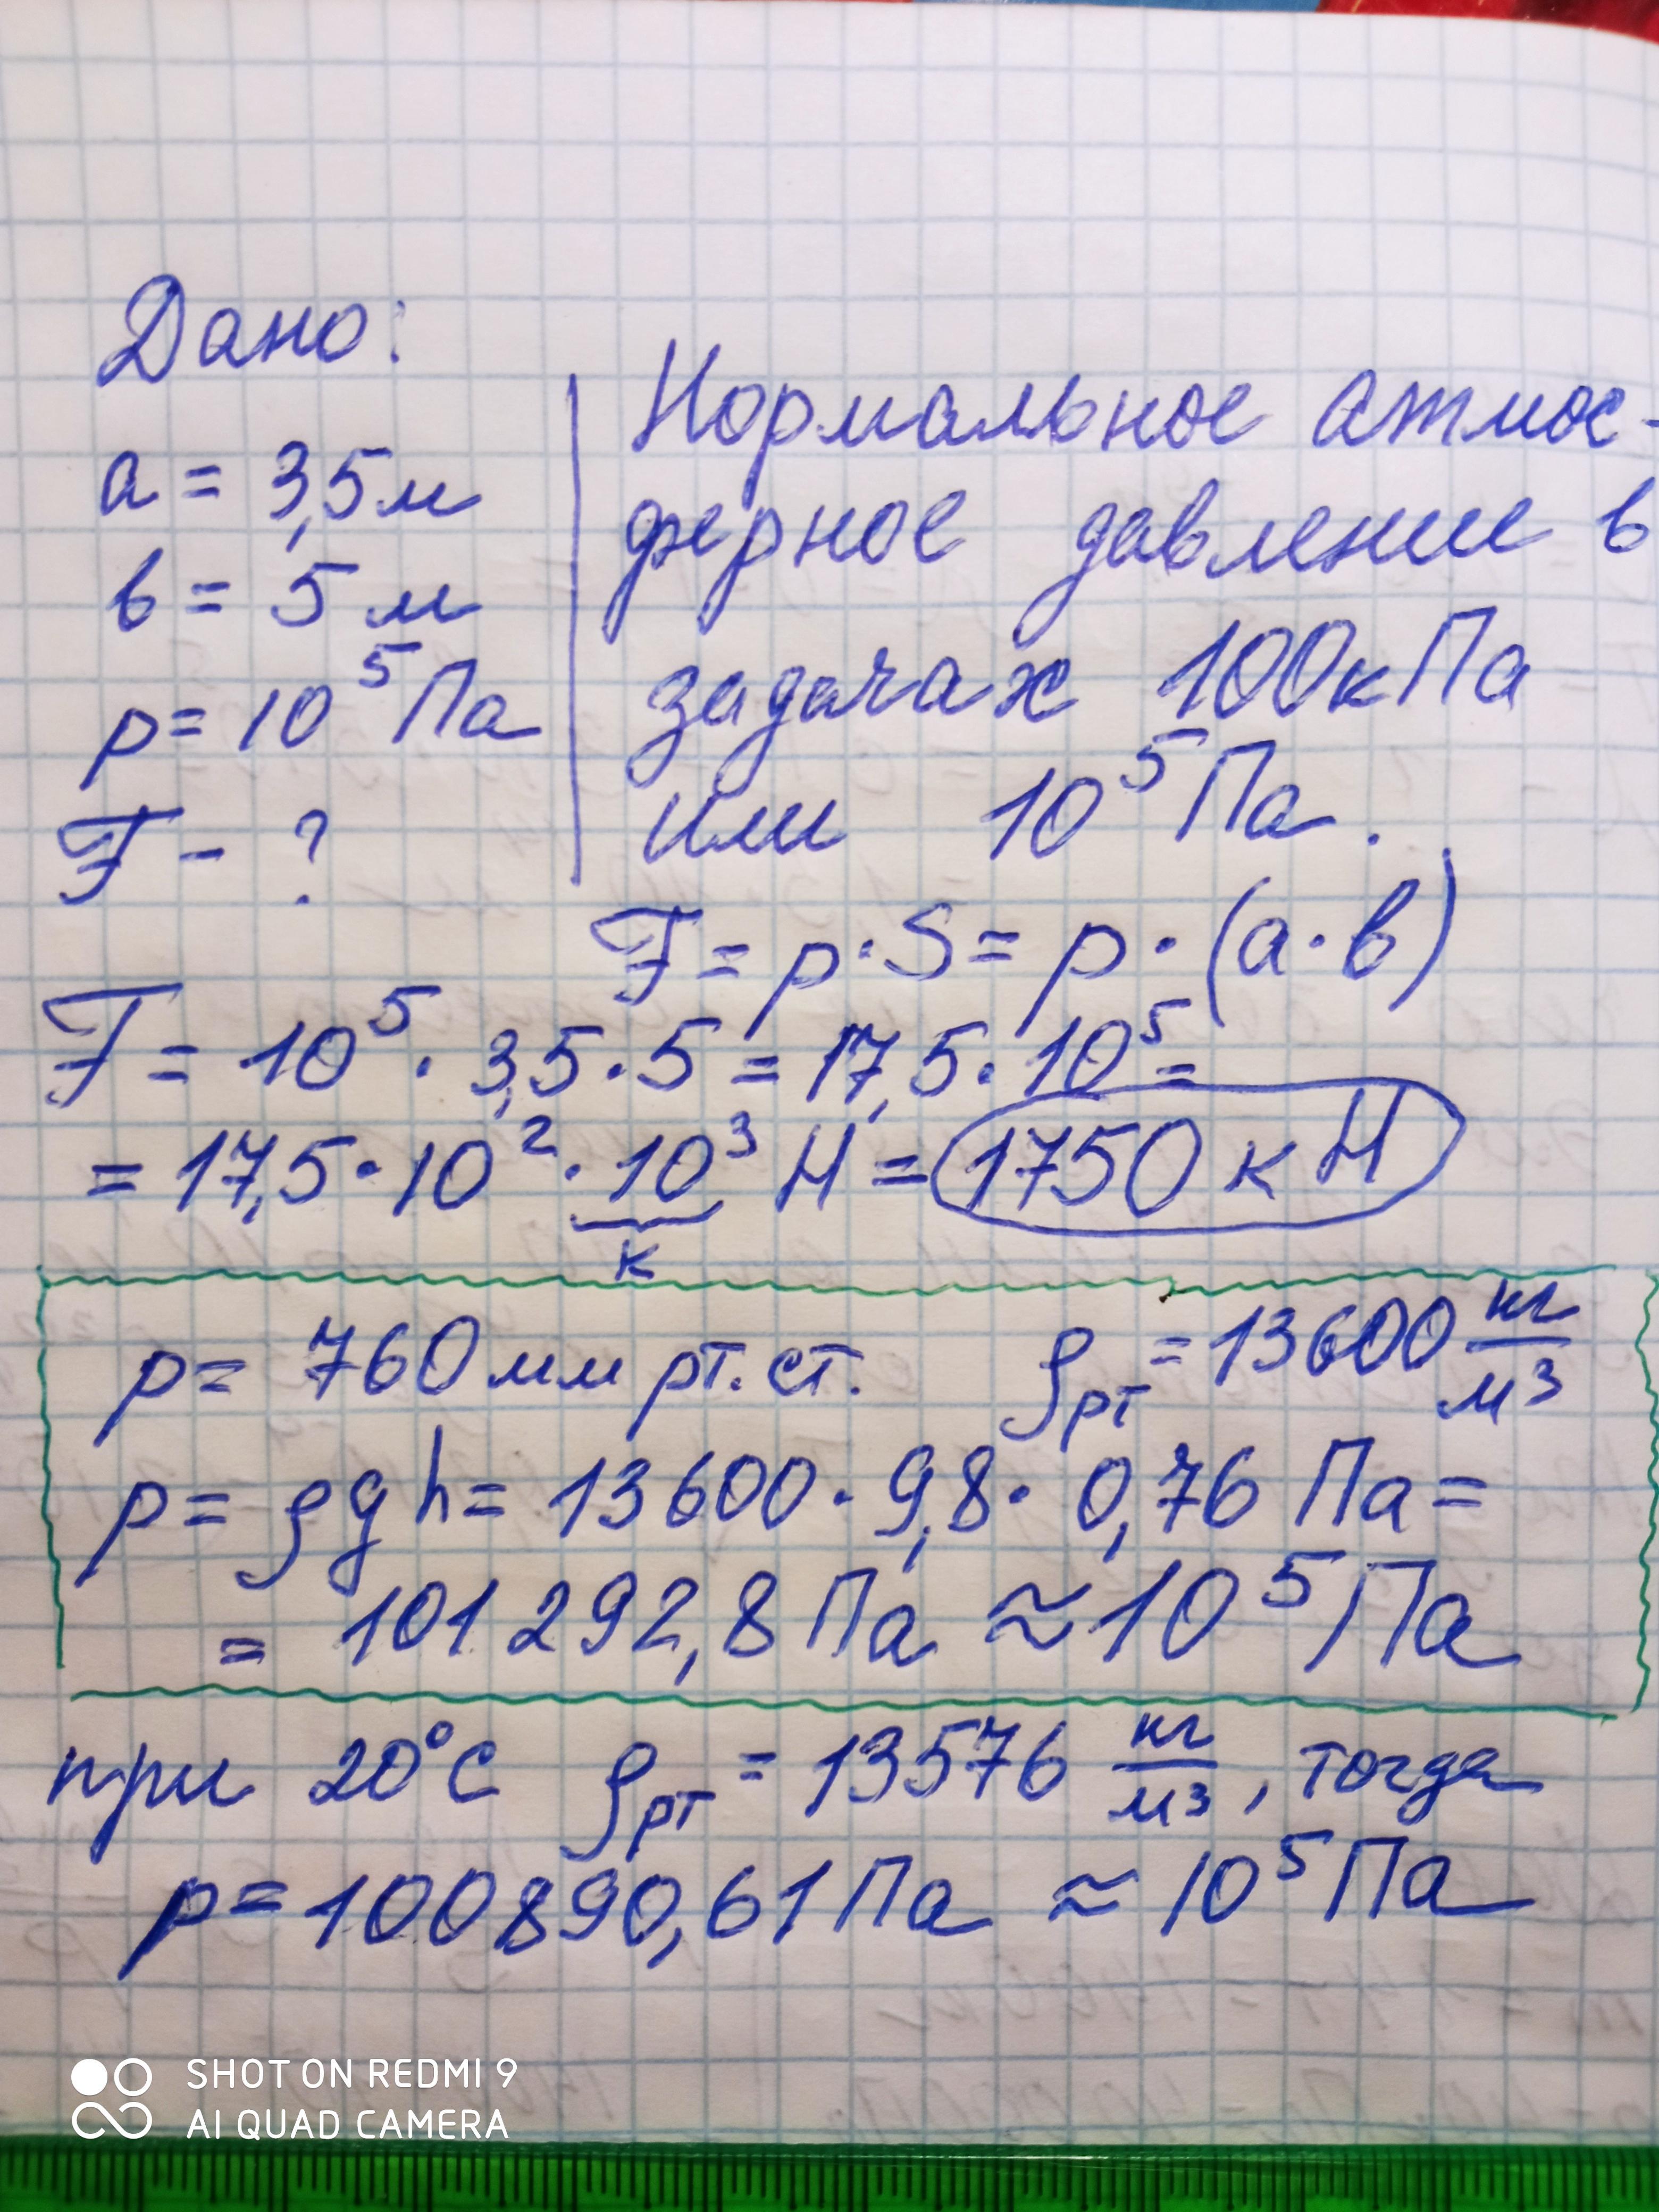 Дано:
a = 3,5 м
в = 5 м
p = 10⁵ Па
F - ?
Нормальное атмос-
ферное давление в
задачах 100 кПа
или 10⁵ Па.
F = p · S = p · (a · в)
F = 10⁵ · 3,5 · 5 = 17,5 · 10⁵ =
= 17,5 · 10² · 10³ Н = 1750 кН
к
p = 760 мм рт. ст. ρрт = 13600 кг/м³
p = ρgh = 13600 · 9,8 · 0,76 Па =
= 101 292,8 Па ≈ 10⁵ Па
при 20°С ρрт = 13576 кг/м³, тогда
p = 100890,61 Па ≈ 10⁵ Па
SHOT ON REDMI 9
AI QUAD CAMERA